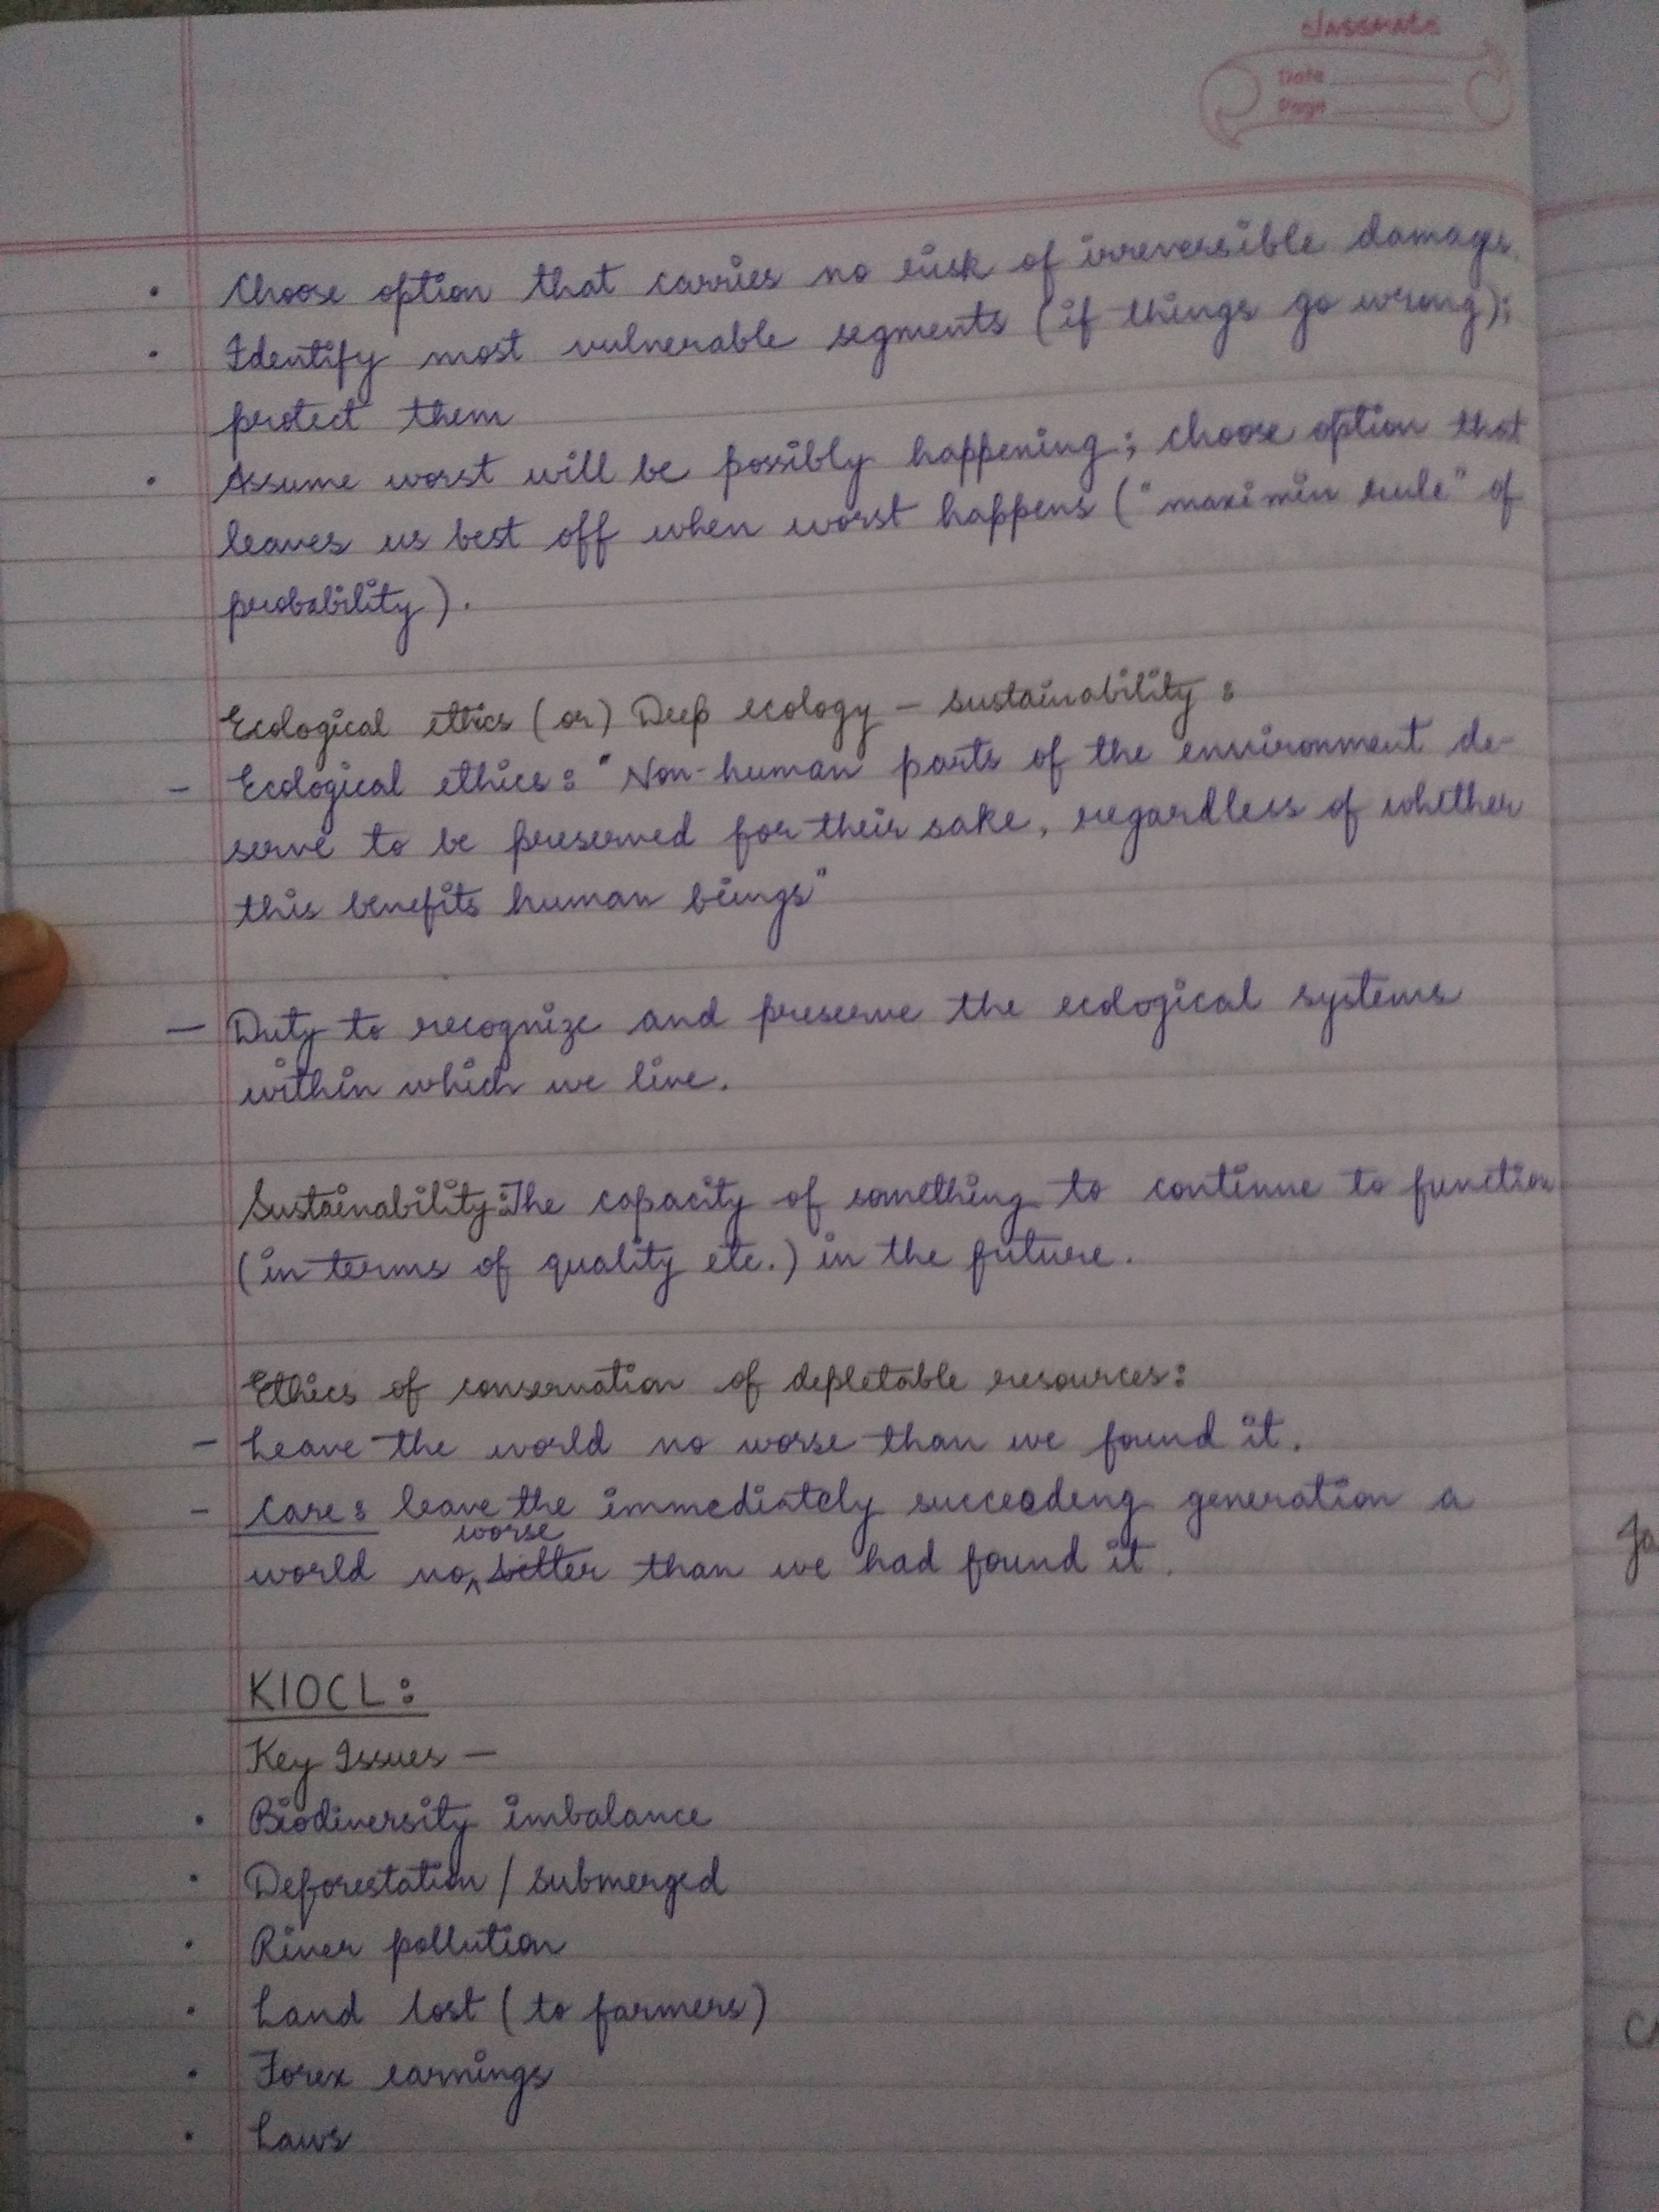 classmate
Date
Page
• Choose option that carries no risk of irreversible damage.
• Identify most vulnerable segments (if things go wrong);
protect them
• Assume worst will be possibly happening; choose option that
leaves us best off when worst happens ("maximin rule" of
probability).
Ecological ethics (or) Deep ecology – sustainability:
- Ecological ethics: "Non-human parts of the environment de-
serve to be preserved for their sake, regardless of whether
this benefits human beings"
- Duty to recognize and preserve the ecological systems
within which we live.
Sustainability: The capacity of something to continue to function
(in terms of quality etc.) in the future.
Ethics of conservation of depletable resources:
- Leave the world no worse than we found it.
- Care: leave the immediately succeeding generation a
worse
world no ^ better than we had found it.
KIOCL:
Key Issues –
• Biodiversity imbalance
• Deforestation / submerged
• River pollution
• Land lost (to farmers)
• Forex earnings
• Laws